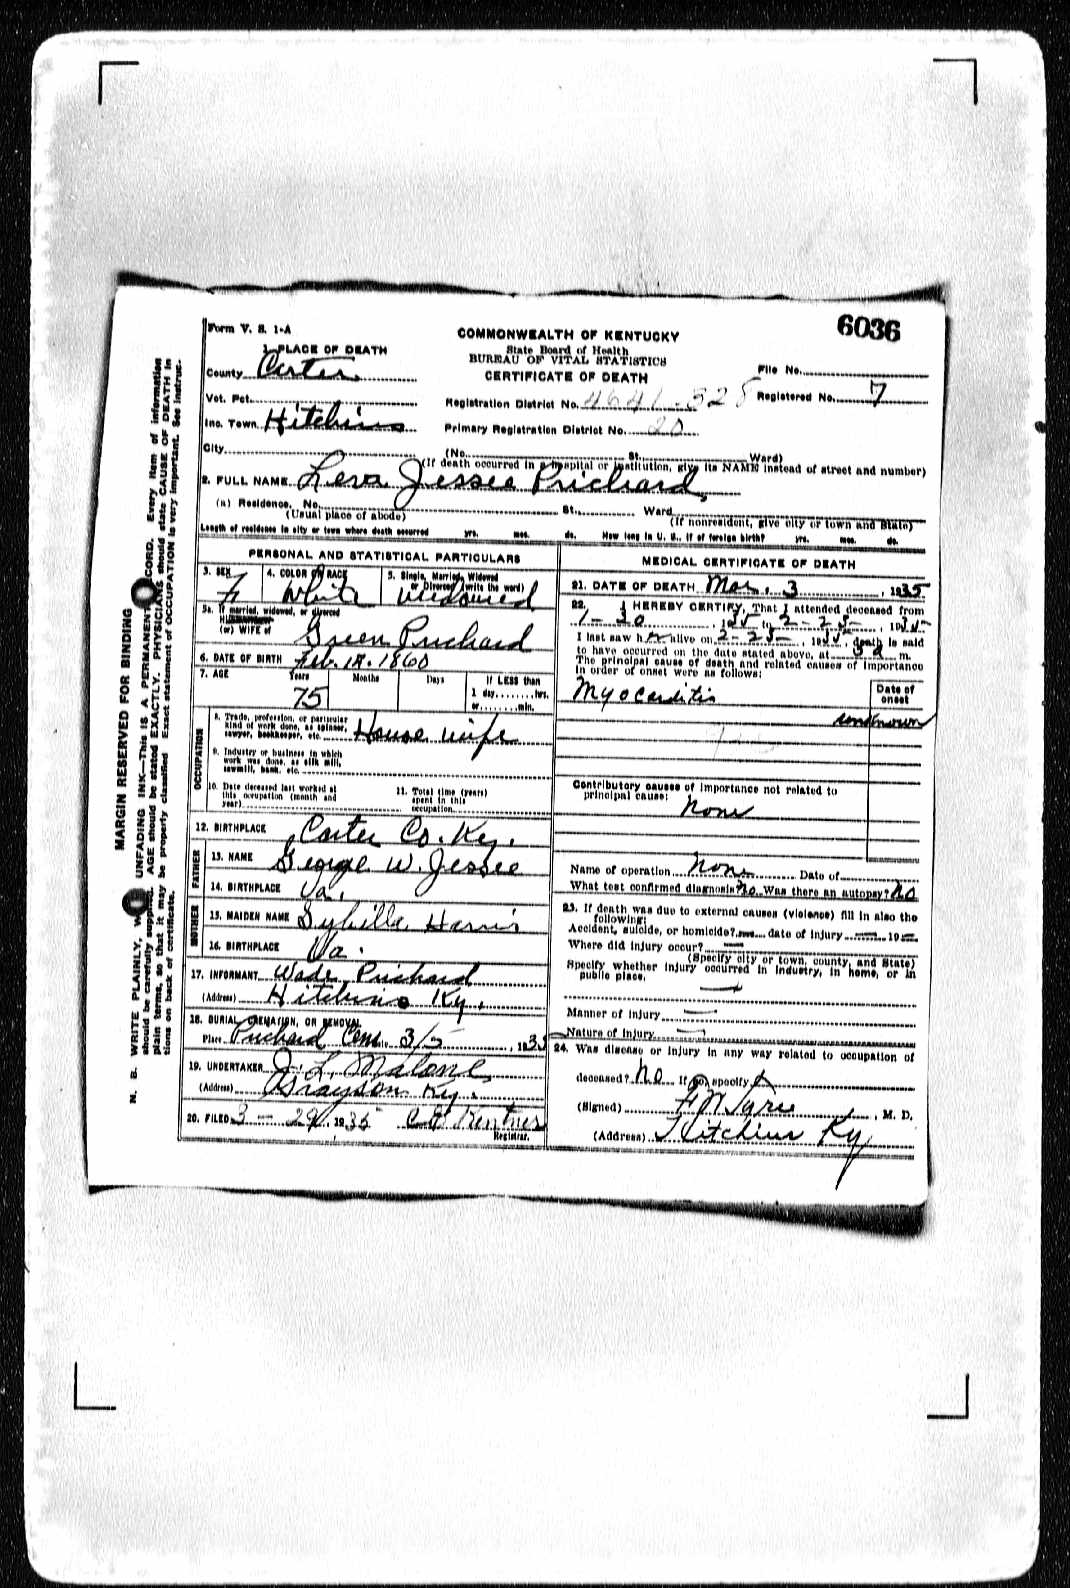 Form V. S. 1-A
6036
COMMONWEALTH OF KENTUCKY
State Board of Health
BUREAU OF VITAL STATISTICS
CERTIFICATE OF DEATH
1. PLACE OF DEATH
County Carter
File No.
Vot. Pct.
Registration District No. 4641-528
Registered No. 7
Inc. Town Hitchins
Primary Registration District No. 20
City
(No. St. Ward)
(If death occurred in a hospital or institution, give its NAME instead of street and number)
2. FULL NAME Leva Jessee Prichard
(a) Residence. No. St. Ward
(Usual place of abode)
(If nonresident, give city or town and State)
Length of residence in city or town where death occurred yrs. mos. ds. How long in U. S., if of foreign birth? yrs. mos. ds.
PERSONAL AND STATISTICAL PARTICULARS
3. SEX
4. COLOR OR RACE
5. Single, Married, Widowed
or Divorced (write the word)
F
White
Widowed
5a. If married, widowed, or divorced
(or) WIFE of
Green Prichard
6. DATE OF BIRTH Feb. 18. 1860
7. AGE
Years
Months
Days
If LESS than
1 day, hrs.
or min.
75
OCCUPATION
8. Trade, profession, or particular
kind of work done, as spinner,
sawyer, bookkeeper, etc. House wife
9. Industry or business in which
work was done, as silk mill,
sawmill, bank, etc.
10. Date deceased last worked at
this occupation (month and
year)
11. Total time (years)
spent in this
occupation
12. BIRTHPLACE Carter Co. Ky.
FATHER
13. NAME George W. Jessee
14. BIRTHPLACE Va.
MOTHER
15. MAIDEN NAME Sybilla Harris
16. BIRTHPLACE Va.
17. INFORMANT Wade Prichard
(Address) Hitchins Ky.
18. BURIAL, CREMATION, OR REMOVAL
Place Prichard Cem. 3/5, 1935
19. UNDERTAKER J. L. Malone
(Address) Grayson Ky.
20. FILED 3-29, 1935
Registrar.
MEDICAL CERTIFICATE OF DEATH
21. DATE OF DEATH Mar. 3, 1935
22. I HEREBY CERTIFY, That I attended deceased from
1-30, 1935 to 2-25-, 1935
I last saw h alive on 2-25-, 1935, death is said
to have occurred on the date stated above, at m.
The principal cause of death and related causes of importance
in order of onset were as follows:
Date of
onset
Myocarditis
unknown
Contributory causes of importance not related to
principal cause:
None
Name of operation None Date of
What test confirmed diagnosis? No Was there an autopsy? No
23. If death was due to external causes (violence) fill in also the
following:
Accident, suicide, or homicide? date of injury 19
Where did injury occur?
(Specify city or town, county, and State)
Specify whether injury occurred in industry, in home, or in
public place.
Manner of injury
Nature of injury
24. Was disease or injury in any way related to occupation of
deceased? No If so, specify
(Signed) M. D.
(Address) Hitchins Ky
MARGIN RESERVED FOR BINDING
N. B. WRITE PLAINLY, UNFADING INK—This IS A PERMANENT RECORD. Every item of information
should be carefully supplied. AGE should be stated EXACTLY. PHYSICIANS should state CAUSE OF DEATH in
plain terms, so that it may be properly classified. Exact statement of OCCUPATION is very important. See instruc-
tions on back of certificate.